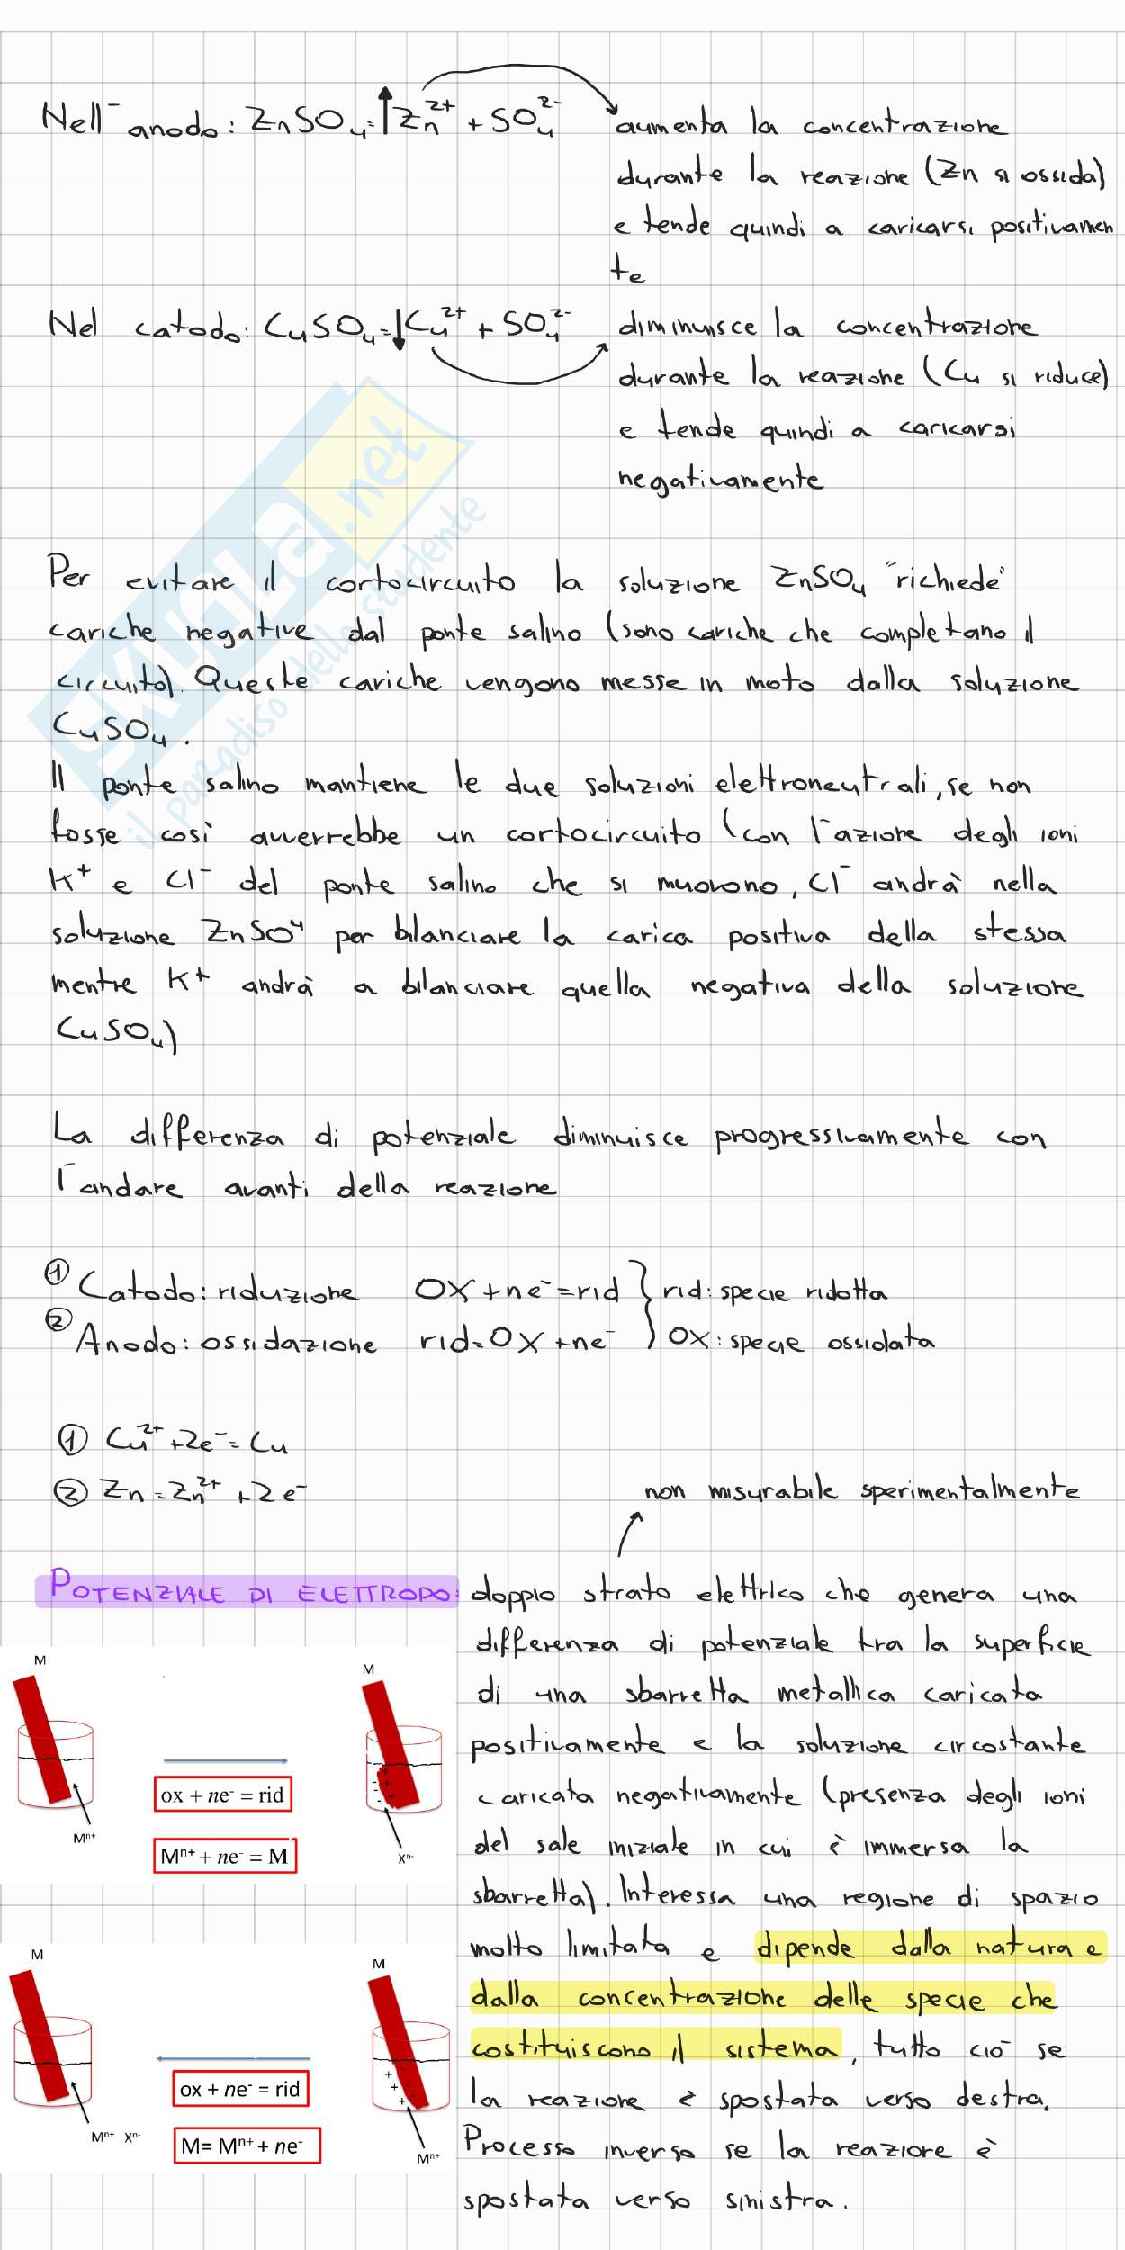 Nell'anodo: ZnSO₄=↑Zn²⁺ + SO₄²⁻ aumenta la concentrazione
durante la reazione (Zn si ossida)
e tende quindi a caricarsi positivamen
te
Nel catodo: CuSO₄=↓Cu²⁺ + SO₄²⁻ diminuisce la concentrazione
durante la reazione (Cu si riduce)
e tende quindi a caricarsi
negativamente
Per evitare il cortocircuito la soluzione ZnSO₄ "richiede"
cariche negative dal ponte salino (sono cariche che completano il
circuito). Queste cariche vengono messe in moto dalla soluzione
CuSO₄.
Il ponte salino mantiene le due soluzioni elettroneutrali, se non
fosse così avverrebbe un cortocircuito (con l'azione degli ioni
K⁺ e Cl⁻ del ponte salino che si muovono, Cl⁻ andrà nella
soluzione ZnSO⁴ per bilanciare la carica positiva della stessa
mentre K⁺ andrà a bilanciare quella negativa della soluzione
CuSO₄)
La differenza di potenziale diminuisce progressivamente con
l'andare avanti della reazione
① Catodo: riduzione OX + ne⁻ = rid } rid: specie ridotta
② Anodo: ossidazione rid = OX + ne⁻ } OX: specie ossidata
① Cu²⁺ + 2e⁻ = Cu
② Zn = Zn²⁺ + 2e⁻
non misurabile sperimentalmente
POTENZIALE DI ELETTRODO: doppio strato elettrico che genera una
differenza di potenziale tra la superficie
di una sbarretta metallica caricata
positivamente e la soluzione circostante
caricata negativamente (presenza degli ioni
del sale iniziale in cui è immersa la
sbarretta). Interessa una regione di spazio
molto limitata e dipende dalla natura e
dalla concentrazione delle specie che
costituiscono il sistema, tutto ciò se
la reazione è spostata verso destra.
Processo inverso se la reazione è
spostata verso sinistra.
M
M
ox + ne⁻ = rid
Mⁿ⁺ + ne⁻ = M
Mⁿ⁺
Xⁿ⁻
M
M
ox + ne⁻ = rid
M= Mⁿ⁺ + ne⁻
Mⁿ⁺ Xⁿ⁻
Mⁿ⁺
SKUOLA.net
il paradiso dello studente